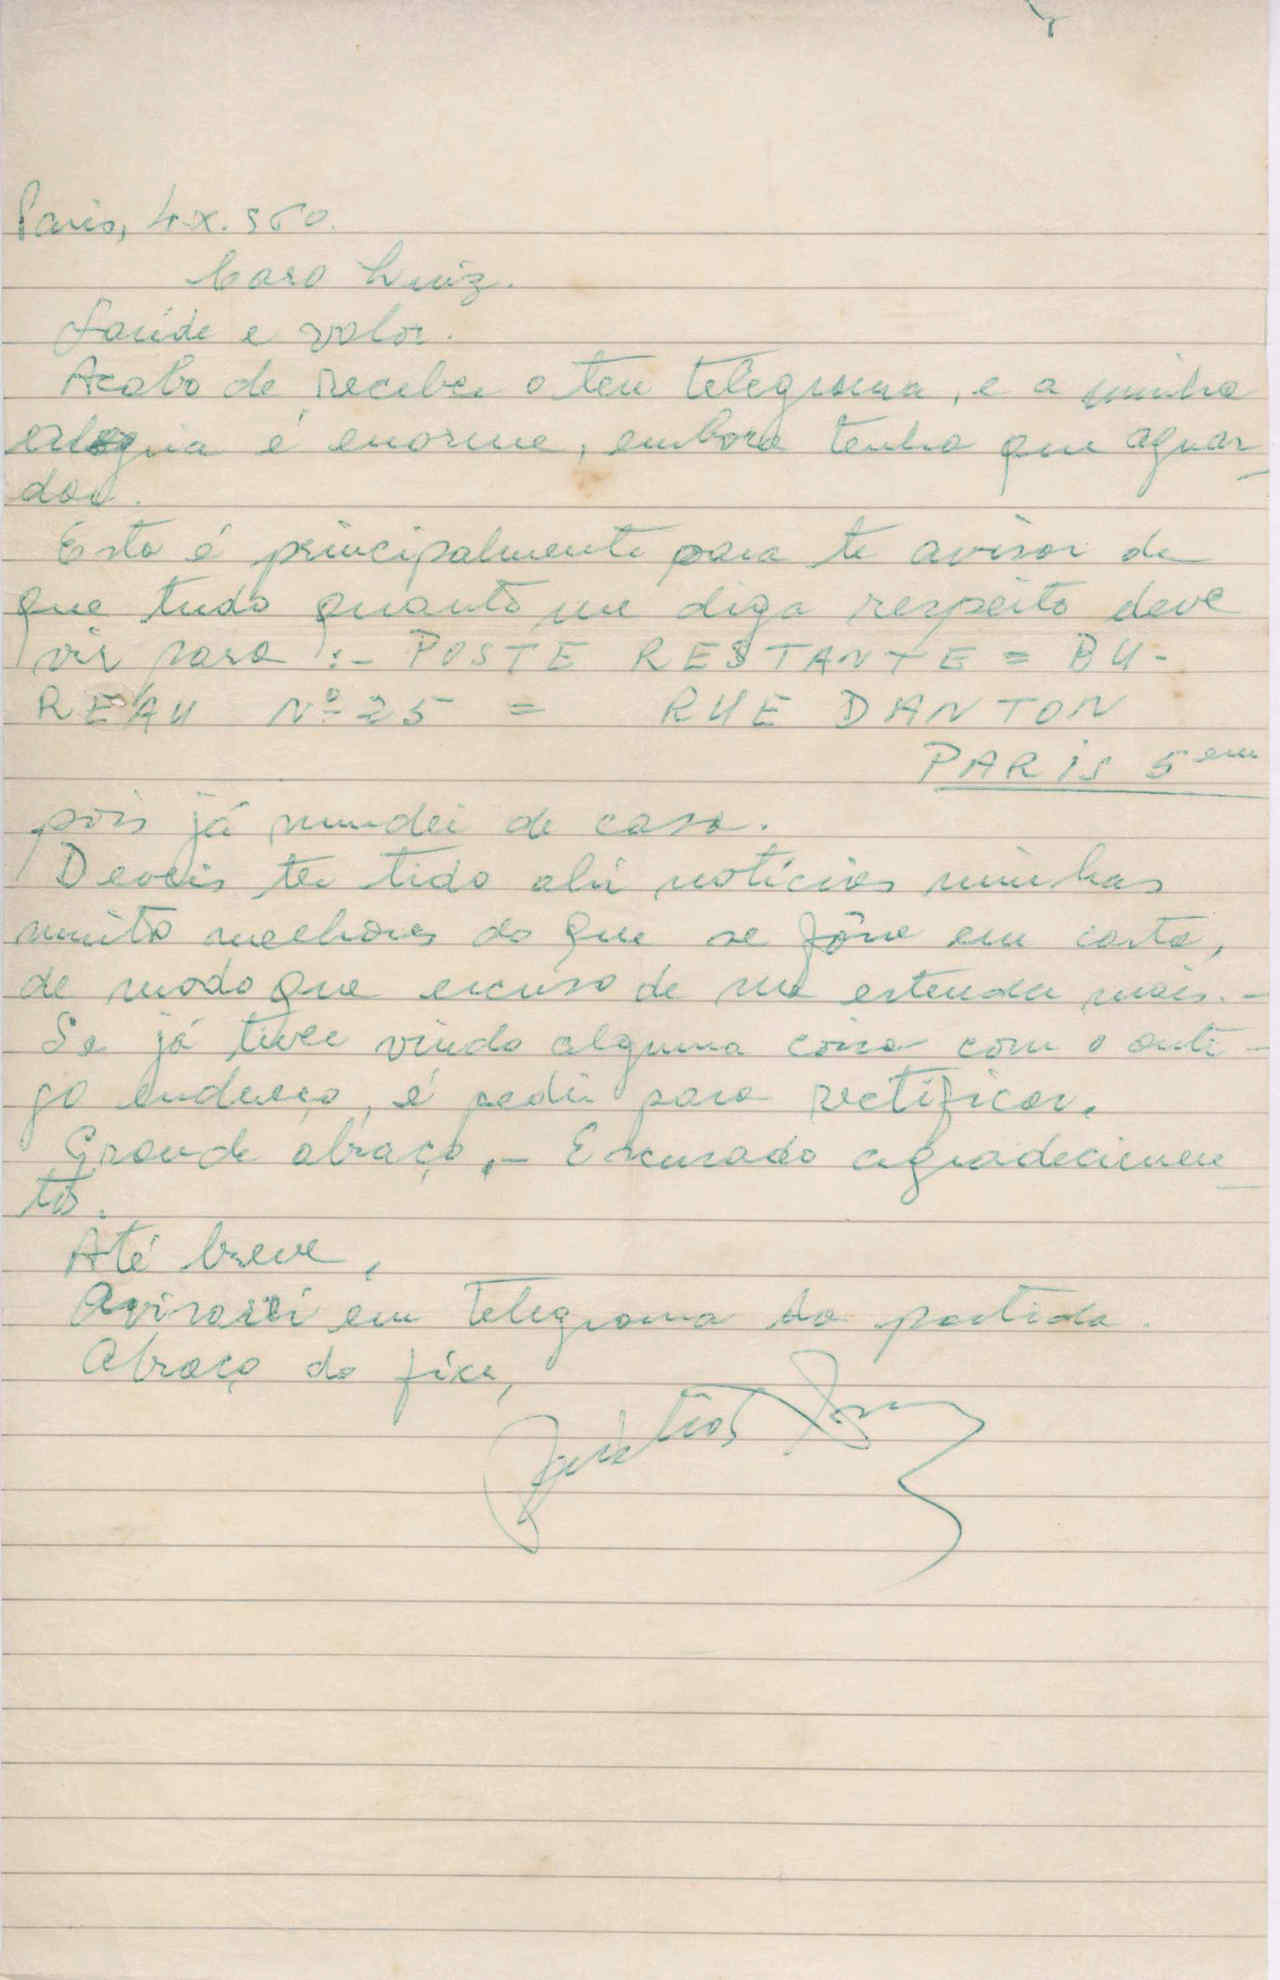 Paris, 4.X.960.
Caro Luiz.
Saúde e valor.
Acabo de receber o teu telegrama, e a minha
alegria é enorme, embora tenha que aguar
dar.
Esta é principalmente para te avisar de
que tudo quanto me diga respeito deve
vir para :- POSTE RESTANTE = BU-
REAU Nº 25 = RUE DANTON
PARIS 5em
pois já mudei de casa.
Deveis ter tido ahi notícias minhas
muito melhores do que se fôra em carta,
de modo que escuso de me estender mais.-
Se já tiver vindo alguma coisa com o anti-
go endereço, é pedir para rectificar.
Grande abraço,- Escusado agradecimen
tos.
Até breve,
Avisarei em telegrama da partida.
Abraço do fixe,